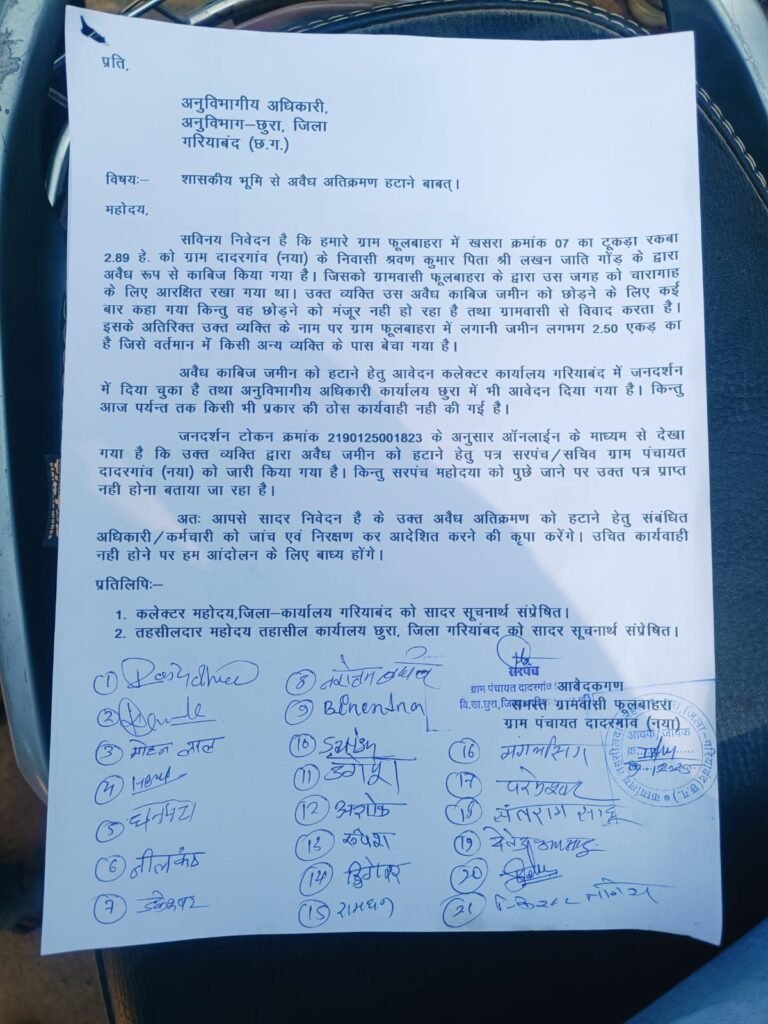 प्रति,
अनुविभागीय अधिकारी,
अनुविभाग–छुरा, जिला
गरियाबंद (छ.ग.)
विषयः– शासकीय भूमि से अवैध अतिक्रमण हटाने बाबत्।
महोदय,
सविनय निवेदन है कि हमारे ग्राम फूलबाहरा में खसरा क्रमांक 07 का टूकड़ा रकबा
2.89 हे. को ग्राम दादरगांव (नया) के निवासी श्रवण कुमार पिता श्री लखन जाति गोंड़ के द्वारा
अवैध रूप से काबिज किया गया है। जिसको ग्रामवासी फूलबाहरा के द्वारा उस जगह को चारागाह
के लिए आरक्षित रखा गया था। उक्त व्यक्ति उस अवैध काबिज जमीन को छोड़ने के लिए कई
बार कहा गया किन्तु वह छोड़ने को मंजूर नही हो रहा है तथा ग्रामवासी से विवाद करता है।
इसके अतिरिक्त उक्त व्यक्ति के नाम पर ग्राम फूलबाहरा में लगानी जमीन लगभग 2.50 एकड़ का
है जिसे वर्तमान में किसी अन्य व्यक्ति के पास बेचा गया है।
अवैध काबिज जमीन को हटाने हेतु आवेदन कलेक्टर कार्यालय गरियाबंद में जनदर्शन
में दिया चुका है तथा अनुविभागीय अधिकारी कार्यालय छुरा में भी आवेदन दिया गया है। किन्तु
आज पर्यन्त तक किसी भी प्रकार की ठोस कार्यवाही नही की गई है।
जनदर्शन टोकन क्रमांक 2190125001823 के अनुसार ऑनलाईन के माध्यम से देखा
गया है कि उक्त व्यक्ति द्वारा अवैध जमीन को हटाने हेतु पत्र सरपंच/सचिव ग्राम पंचायत
दादरगांव (नया) को जारी किया गया है। किन्तु सरपंच महोदया को पुछे जाने पर उक्त पत्र प्राप्त
नही होना बताया जा रहा है।
अतः आपसे सादर निवेदन है के उक्त अवैध अतिक्रमण को हटाने हेतु संबंधित
अधिकारी/कर्मचारी को जांच एवं निरक्षण कर आदेशित करने की कृपा करेंगे। उचित कार्यवाही
नही होने पर हम आंदोलन के लिए बाध्य होंगे।
प्रतिलिपिः–
1. कलेक्टर महोदय,जिला–कार्यालय गरियाबंद को सादर सूचनार्थ संप्रेषित।
2. तहसीलदार महोदय तहासील कार्यालय छुरा, जिला गरियांबद को सादर सूचनार्थ संप्रेषित।
सरपंच
ग्राम पंचायत दादरगांव
वि.खा.छुरा,जिला
आवेदकगण
समस्त ग्रामवासी फूलबाहरा
ग्राम पंचायत दादरगांव (नया)
आवक/जावक
1
2
3 मोहन लाल
4
5
6 नीलकंठ
7
8
9
10
11
12 अशोक
13 रूपेश
14
15 रामधन
16
17 परमेश्वर
18 संतराम साहू
19
20
21